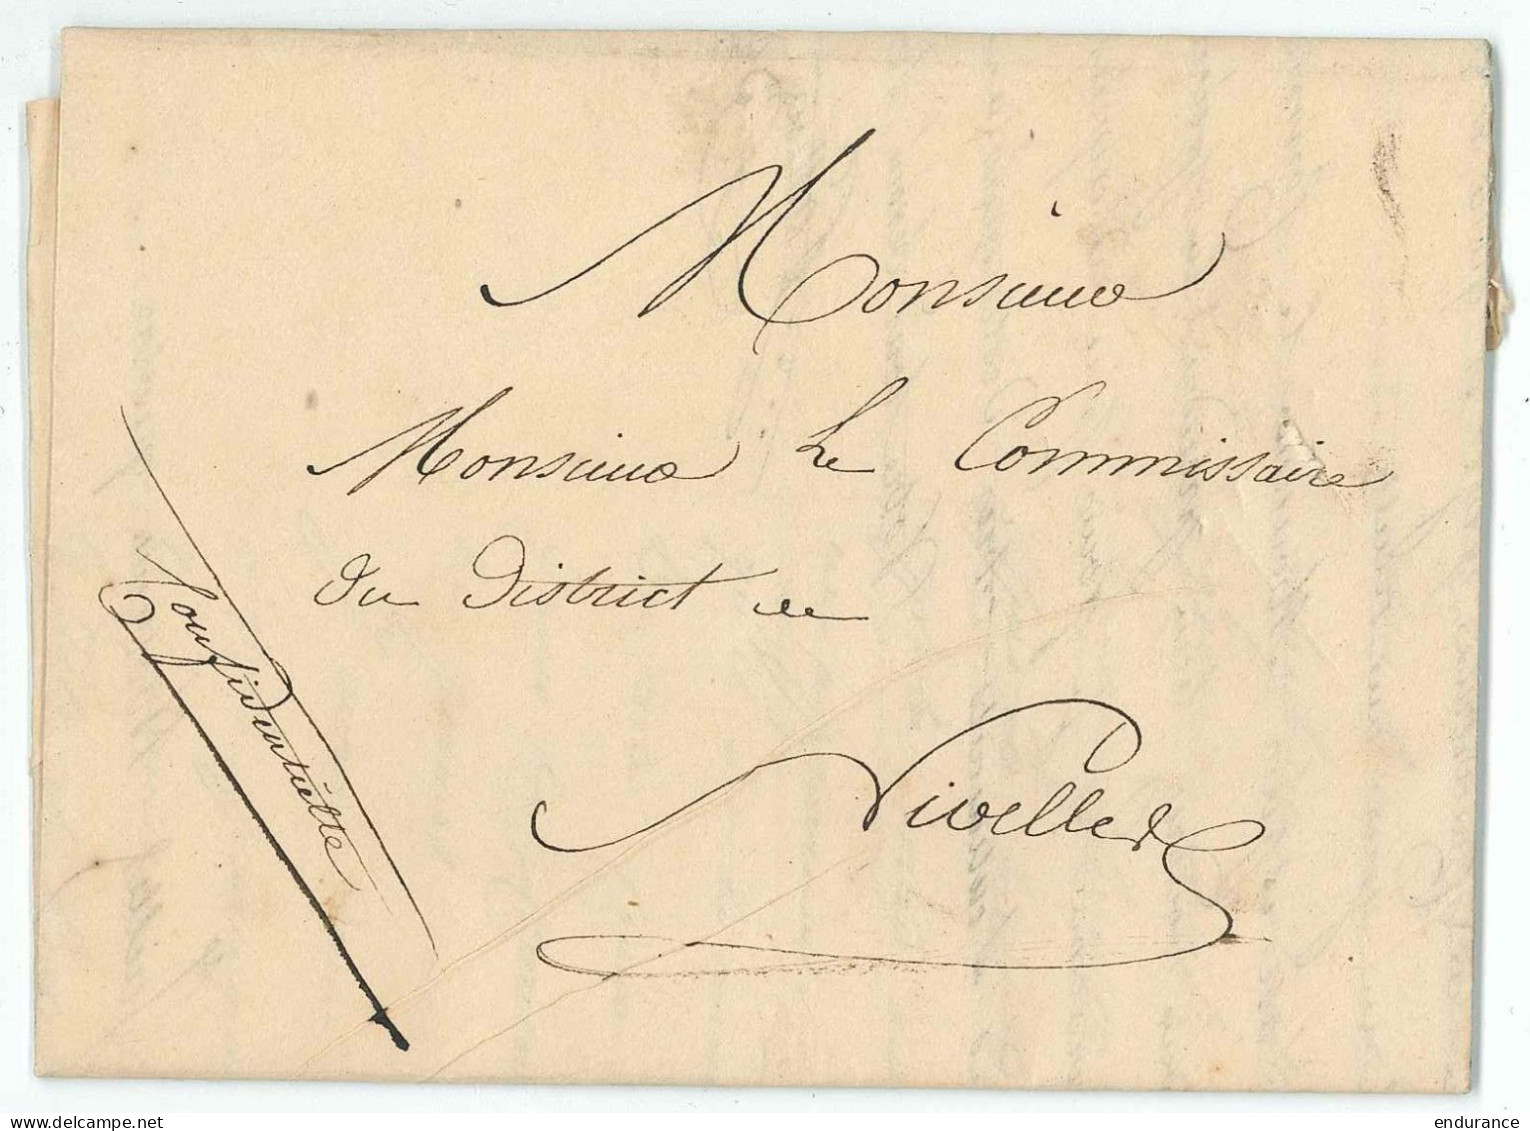 Monsieur
Monsieur Le Commissaire
du District de
Nivelles
Confidentielle
delcampe.net
endurance